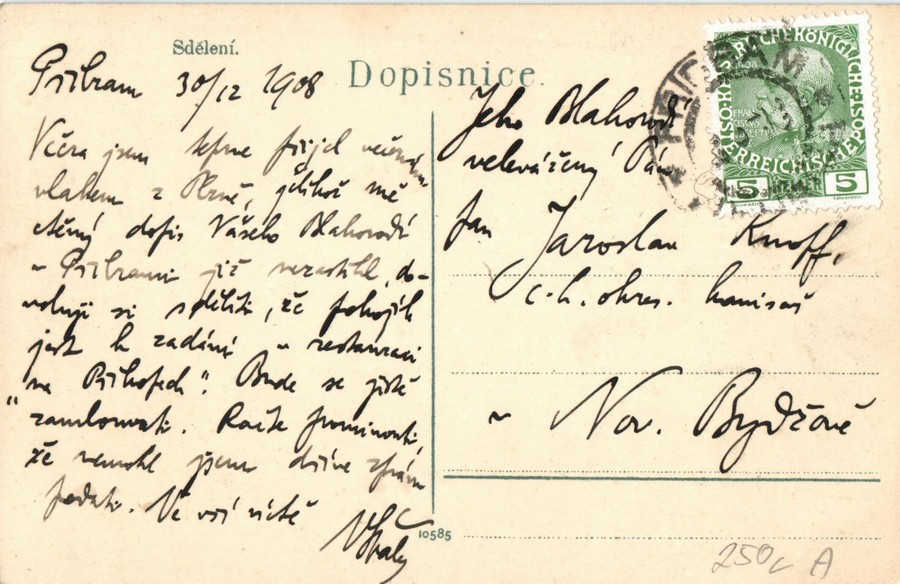 Sdělení.
Dopisnice.
Příbram 30/12 1908
Včera jsem teprve přijel večerním
vlakem z Plzně, jelikož mě
ctěný dopis Vašeho Blahorodí
v Příbrami již nezastihl, do-
voluji si sděliti, že pokojík
jest k zadání v restauraci
"na Příkopech". Bude se jistě
zamlouvati. Račte prominouti,
že nemohl jsem dříve zprávu
podati. Ve vší úctě
Jeho Blahorodí
velevážený Pán
pan Jaroslav Knoff,
c.k. okres. komisař
v Nov. Bydžově
5 5
10585
250,- A